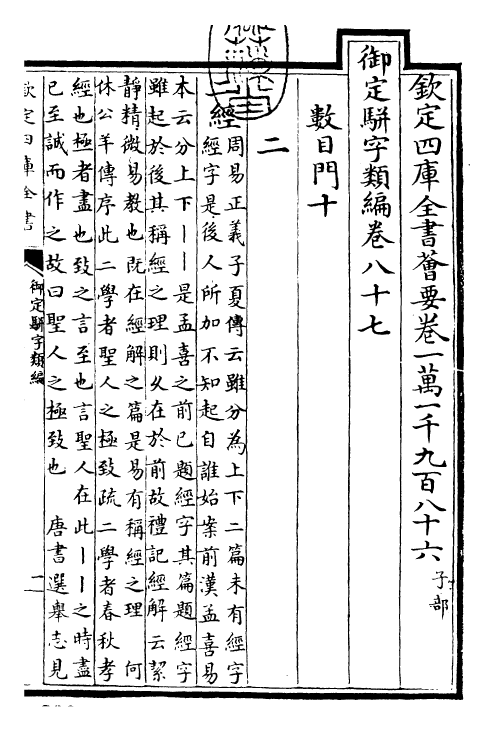 欽定四庫全書薈要卷一萬一千九百八十六子部
御定駢字類編卷八十七
數目門十
二
二經周易正義子夏傳云雖分為上下二篇未有經字
經字是後人所加不知起自誰始案前漢孟喜易
本云分上下丨丨是孟喜之前已題經字其篇題經字
雖起於後其稱經之理則久在於前故禮記經解云絜
靜精微易教也既在經解之篇是易有稱經之理 何
休公羊傳序此二學者聖人之極致疏二學者春秋孝
經也極者盡也致之言至也言聖人在此丨丨之時盡
已至誠而作之故曰聖人之極致也 唐書選舉志見
欽定四庫全書
御定駢字類編
二